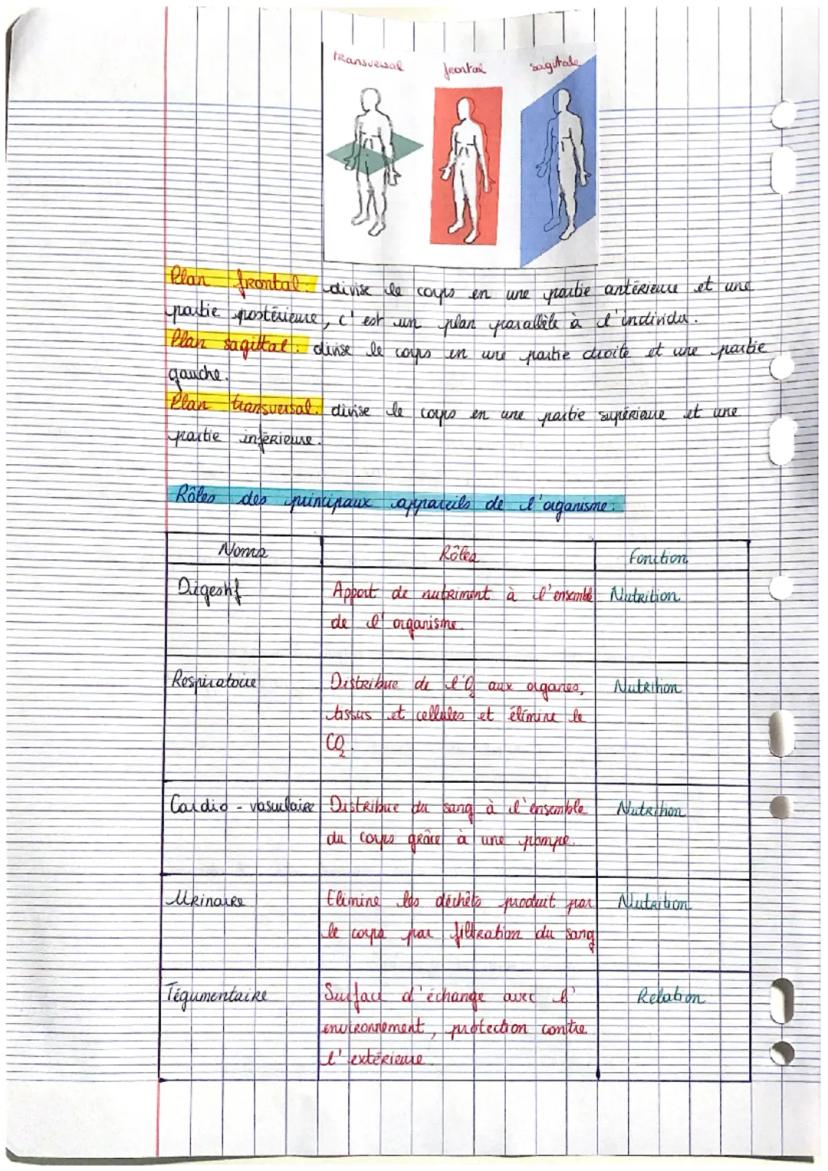 transversal frontal sagitale
Plan frontal : divise le corps en une partie antérieure et une
partie postérieure, c'est un plan parallèle à l'individu.
Plan sagittal : divise le corps en une partie droite et une partie
gauche.
Plan transversal : divise le corps en une partie supérieure et une
partie inférieure.
Rôles des principaux appareils de l'organisme :
Noms Rôles Fonction
Digestif Apport de nutriment à l'ensemble Nutrition
de l'organisme.
Respiratoire Distribue de l'O₂ aux organes, Nutrition
tissus et cellules et élimine le
CO₂.
Cardio-vasculaire Distribue du sang à l'ensemble Nutrition
du corps grâce à une pompe.
Urinaire Elimine les déchêts produit par Nutrition
le corps par filtration du sang
Tégumentaire Surface d'échange avec l' Relation
environnement, protection contre
l'extérieure.